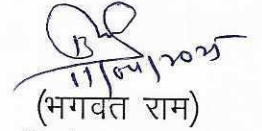 11/04/2025
(भगवत राम)